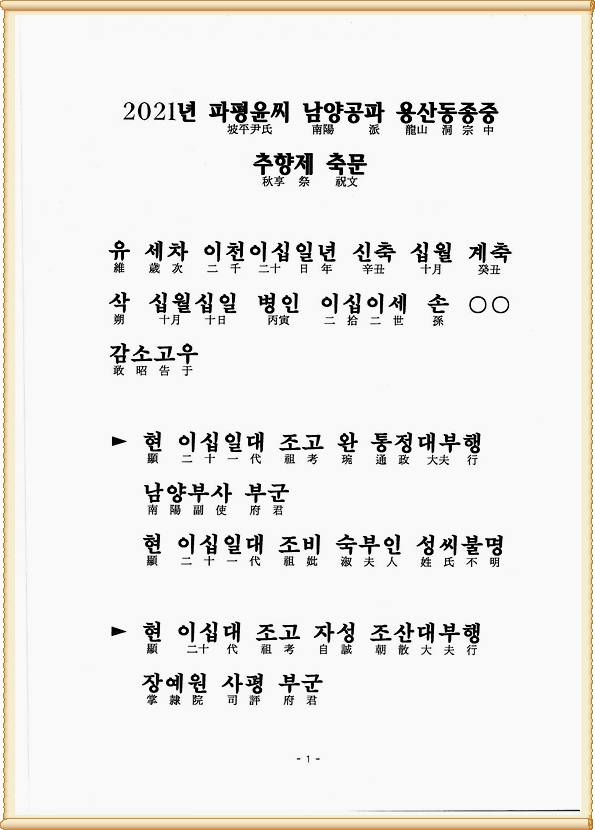 2021년 파평윤씨 남양공파 용산동종중
坡平尹氏 南陽 派 龍山 洞 宗 中
추향제 축문
秋享 祭 祝文
유 세차 이천이십일년 신축 십월 계축
維 歲 次 二 千 二十 日 年 辛丑 十月 癸丑
삭 십월십일 병인 이십이세 손 ○○
朔 十月 十日 丙寅 二 拾 二 世 孫
감소고우
敢 昭 告 于
► 현 이십일대 조고 완 통정대부행
顯 二 十 一 代 祖 考 琬 通 政 大夫 行
남양부사 부군
南 陽 副 使 府 君
현 이십일대 조비 숙부인 성씨불명
顯 二 十 一 代 祖 妣 淑 夫 人 姓 氏 不 明
► 현 이십대 조고 자성 조산대부행
顯 二十 代 祖 考 自 誠 朝 散 大 夫 行
장예원 사평 부군
掌 隷 院 司 評 府 君
- 1 -